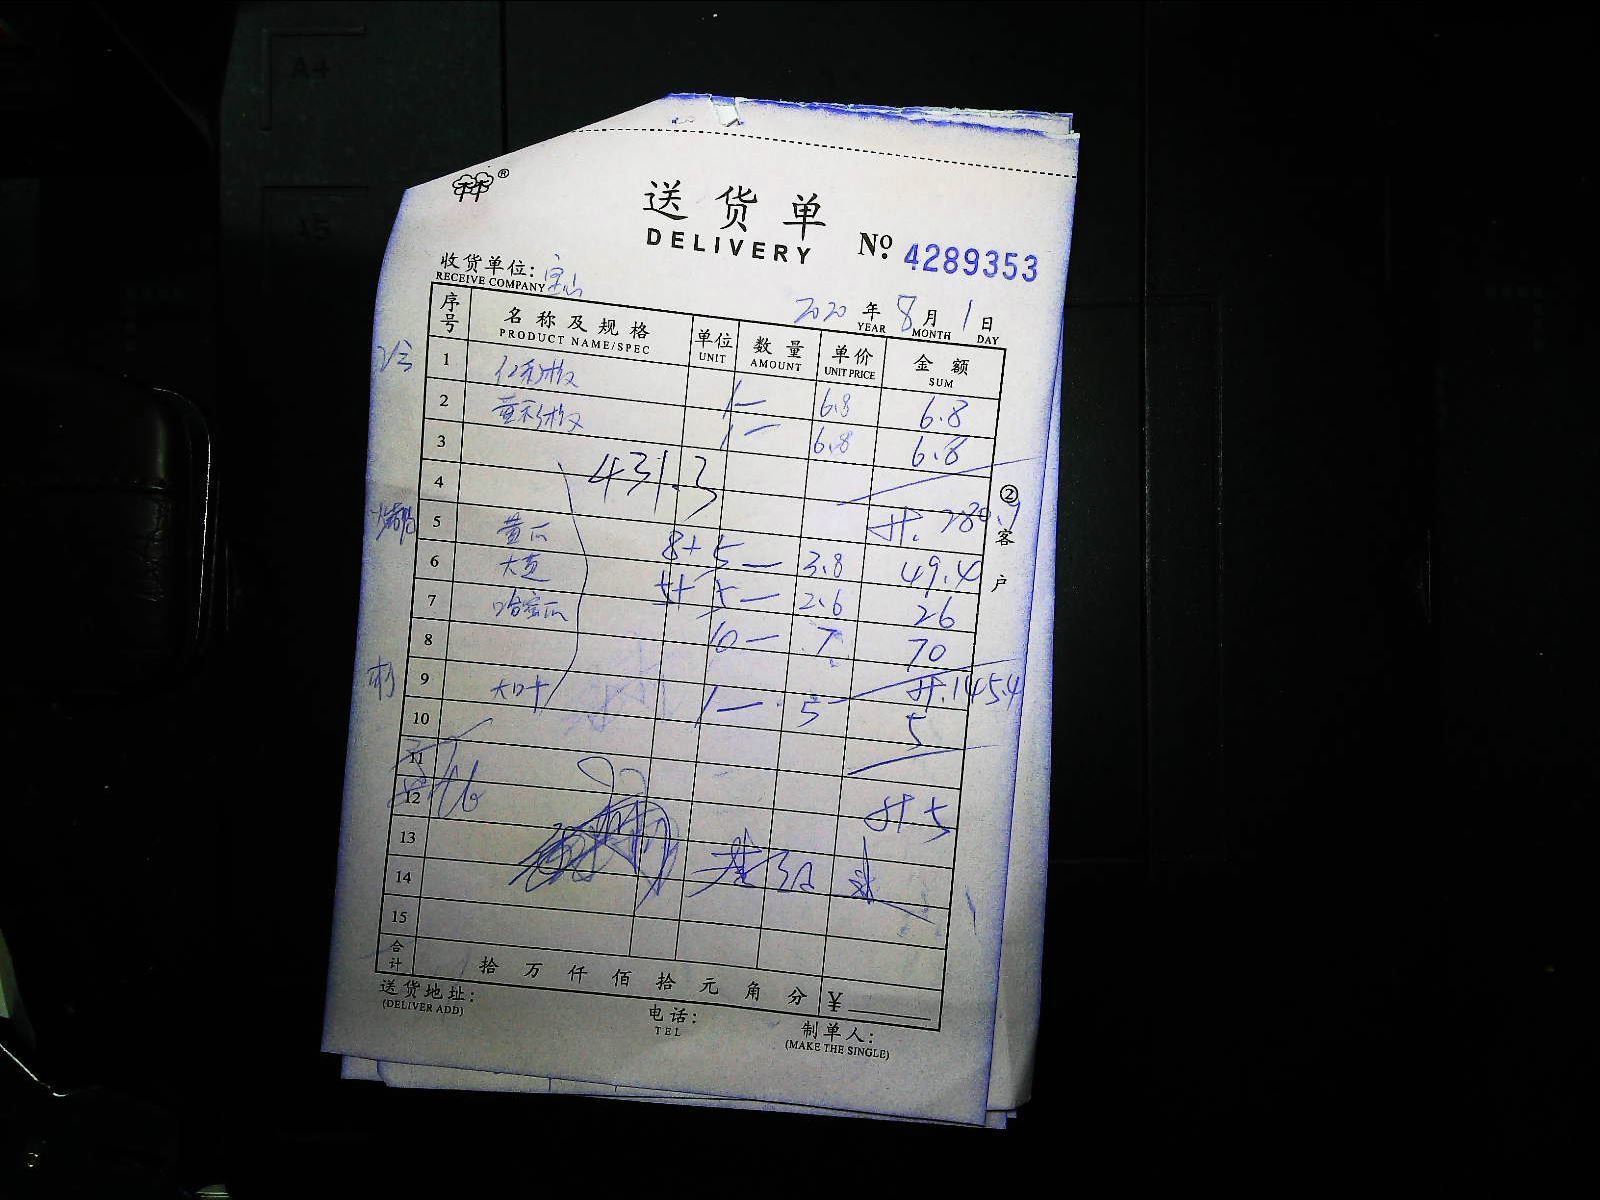 送货单
DELIVERY
№ 4289353
收货单位: 宝山
RECEIVE COMPANY
2020 年 8 月 1 日
YEAR MONTH DAY
序号 名称及规格 单位 数量 单价 金额
PRODUCT NAME/SPEC UNIT AMOUNT UNIT PRICE SUM
1 红彩椒 1— 6.8 6.8
2 黄彩椒 1— 6.8 6.8
3
431.3
4 共. 280.9
5 黄瓜 8+5— 3.8 49.4
6 大查 5+5— 2.6 26
7 哈密瓜 10— 7 70
8 共.145.4
9 大口十 1— 5 5
10
11
12 共5
13
14
15
合计 拾 万 仟 佰 拾 元 角 分 ¥
②客户
送货地址:
(DELIVER ADD)
电话:
TEL
制单人:
(MAKE THE SINGLE)
A4
A5